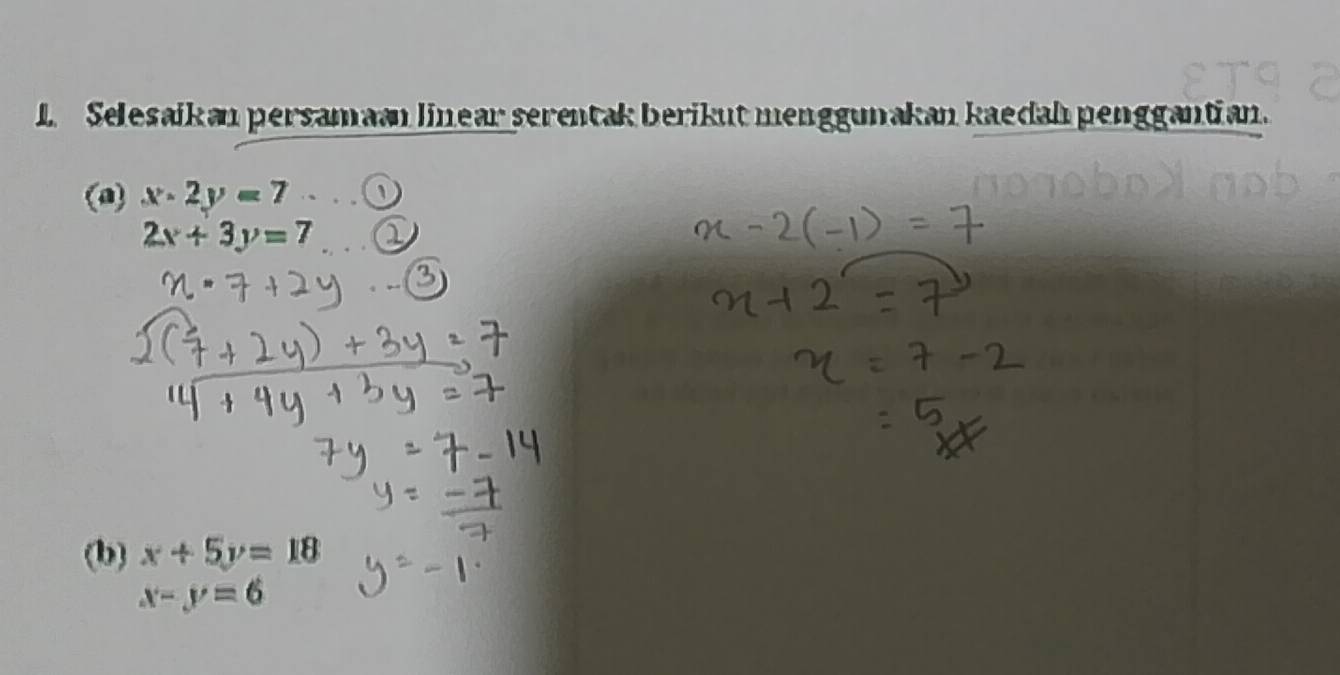 1. Selesaikan persamaan linear serentak berikut menggunakan kaedah penggantian.
(a) x - 2y = 7 .... ①
2x + 3y = 7 .... ②
x = 7 + 2y ... ③
2(7 + 2y) + 3y = 7
14 + 4y + 3y = 7
7y = 7 - 14
y = -7/7
y = -1.
x - 2(-1) = 7
x + 2 = 7
x = 7 - 2
= 5
(b) x + 5y = 18
x - y = 6